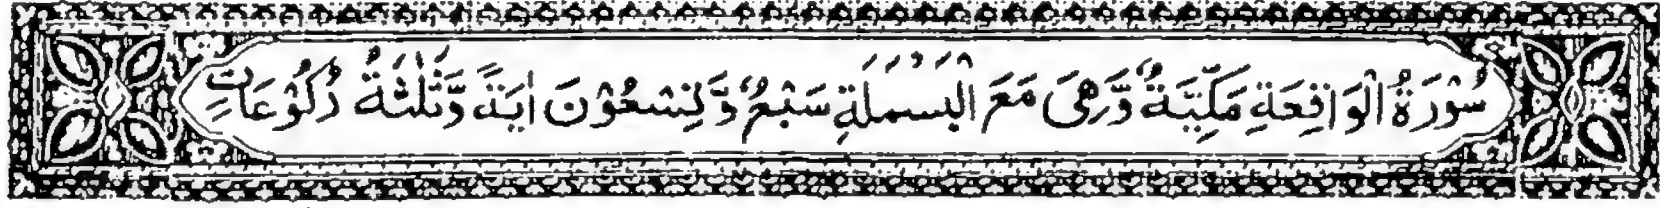 سُوْرَةُ الْوَاقِعَةِ مَكِّيَّةٌ وَّهِىَ مَعَ الْبَسْمَلَةِ سَبْعٌ وَّتِسْعُوْنَ اٰيَةً وَّثَلٰثَةُ رُكُوْعَاتٍ